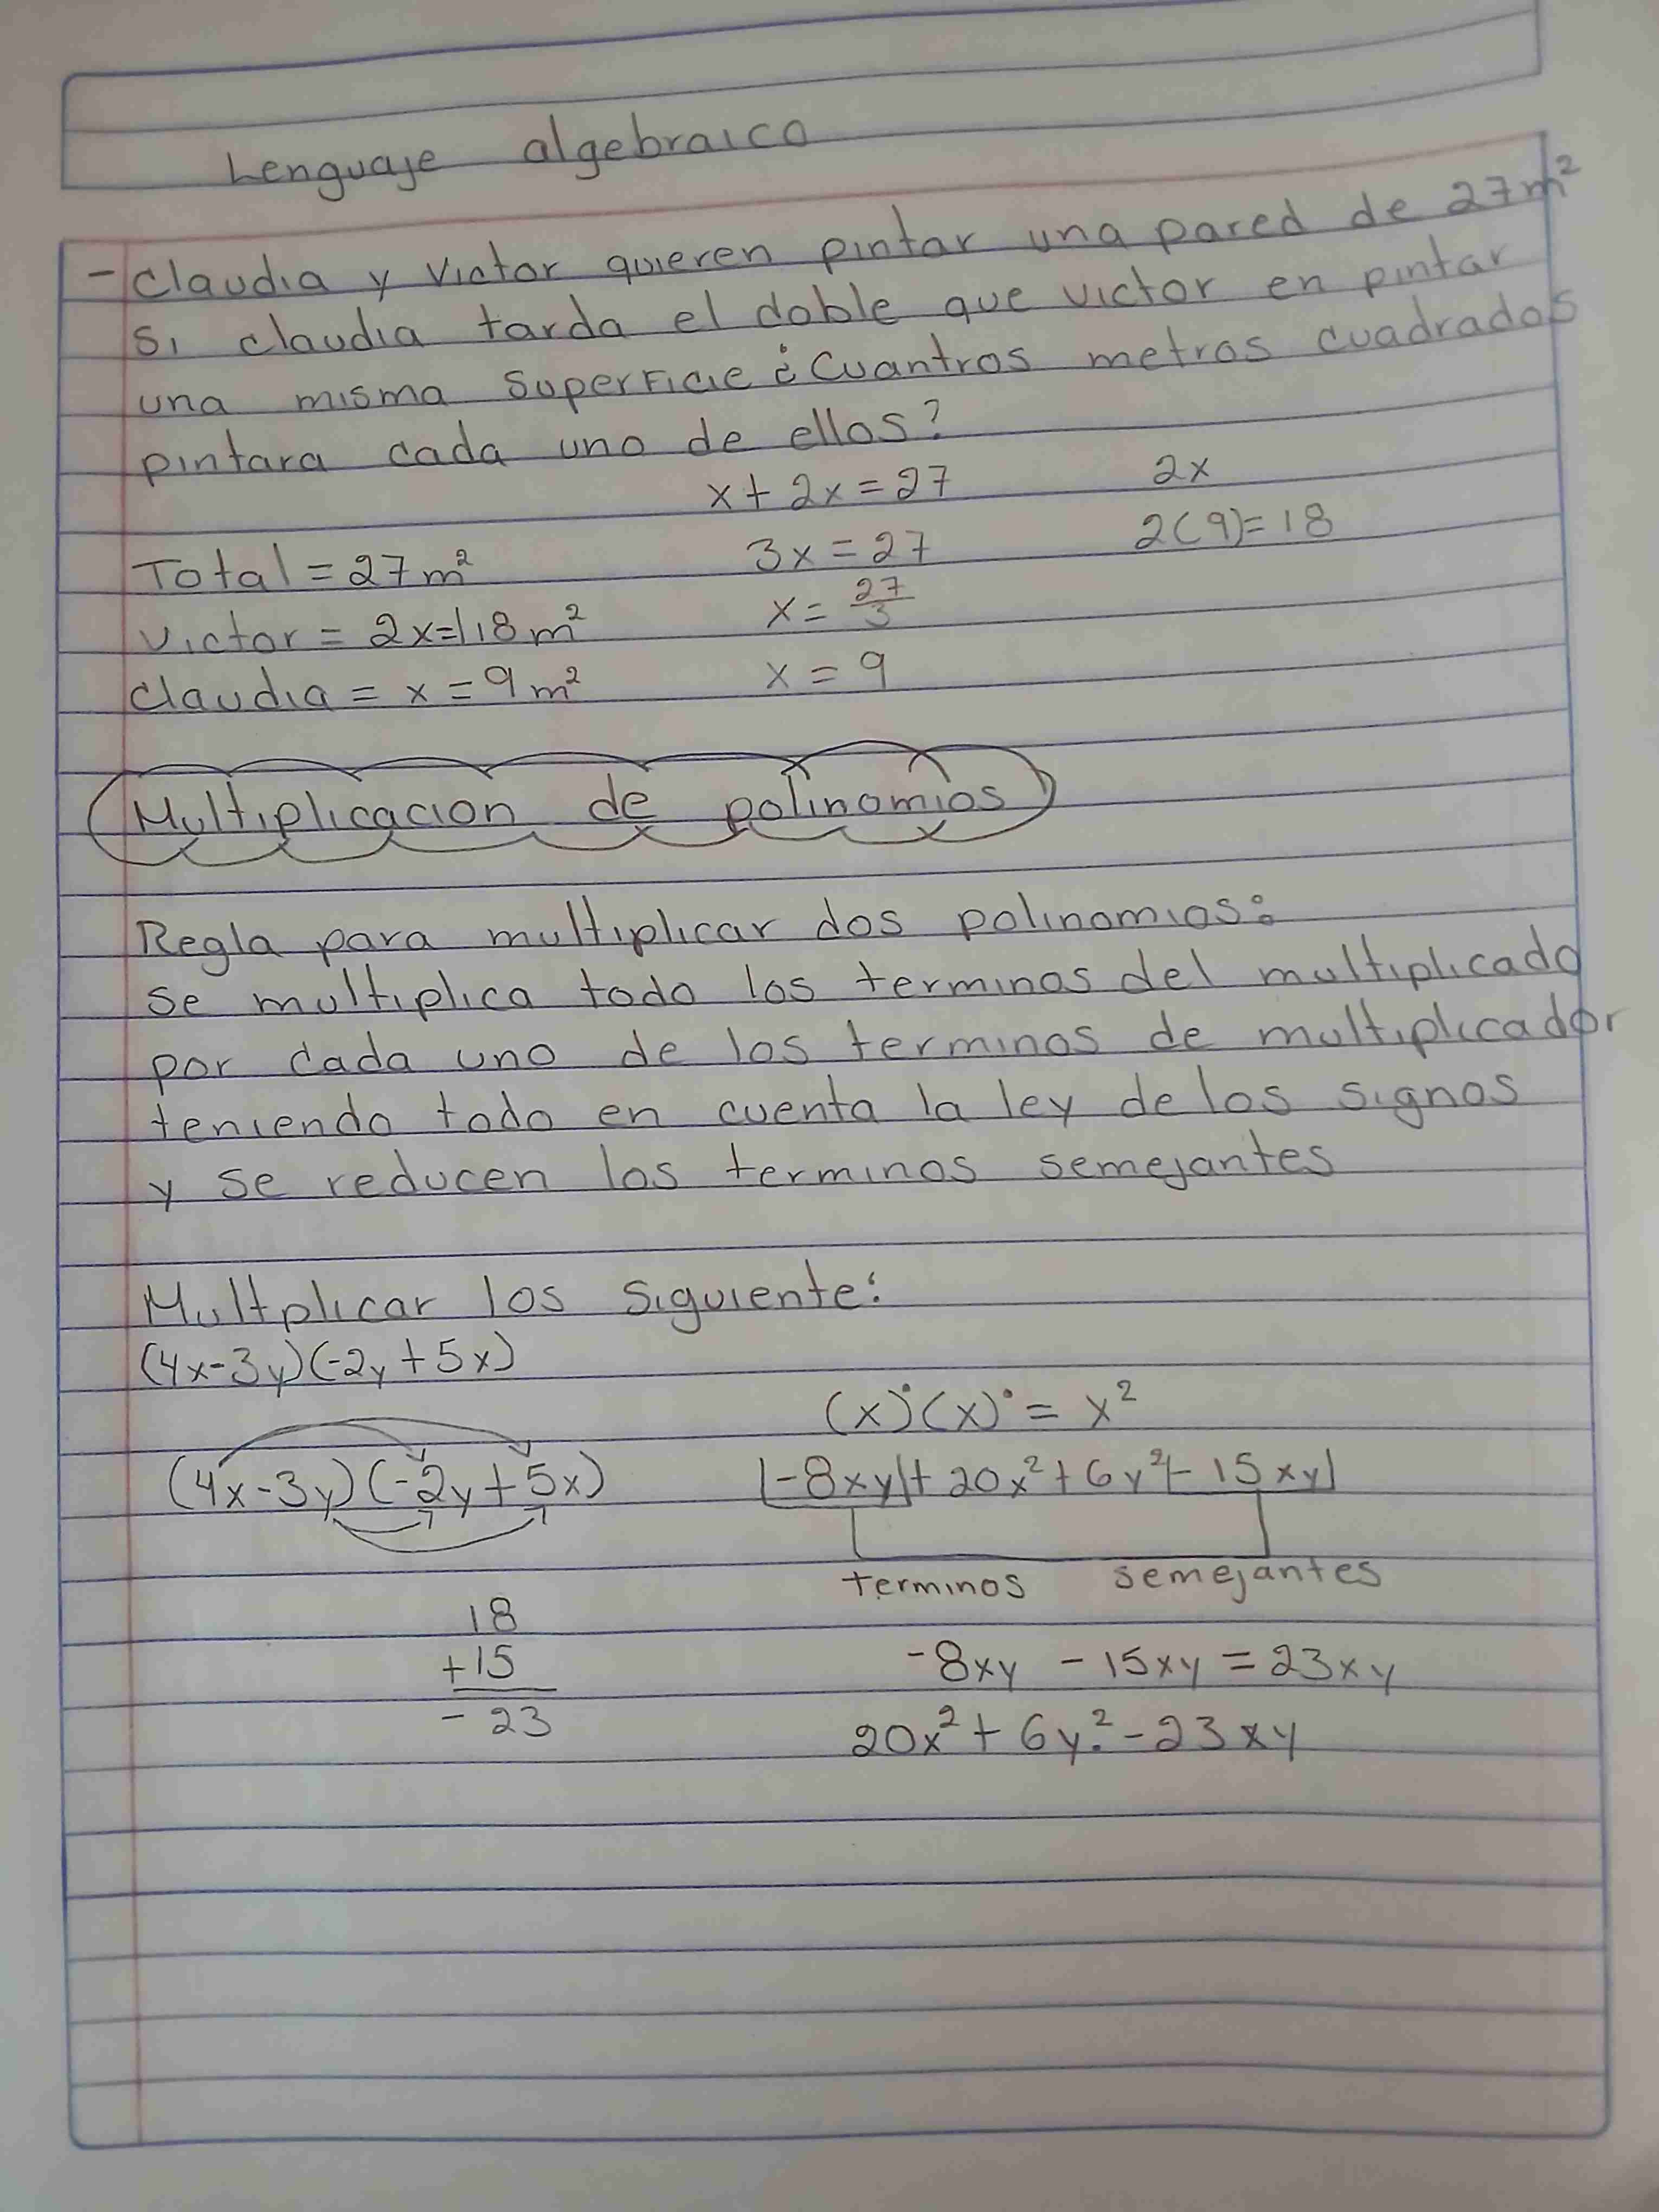 Lenguaje algebraico
- Claudia y Victor quieren pintar una pared de 27m²
Si claudia tarda el doble que victor en pintar
una misma superficie ¿Cuantros metros cuadrados
pintara cada uno de ellos?
x + 2x = 27
2x
Total = 27m²
3x = 27
2(9)=18
Victor = 2x=18m²
x = 27/3
Claudia = x = 9m²
x = 9
Multiplicacion de polinomios
Regla para multiplicar dos polinomios:
se multiplica todo los terminos del multiplicado
por cada uno de los terminos de multiplicador
teniendo todo en cuenta la ley de los signos
y se reducen los terminos semejantes
Multplicar los siguiente:
(4x-3y)(-2y+5x)
(x)·(x)· = x²
(4x-3y)(-2y+5x)
-8xy + 20x² + 6y² - 15xy
terminos semejantes
18
+15
- 23
-8xy - 15xy = 23xy
20x² + 6y² - 23xy